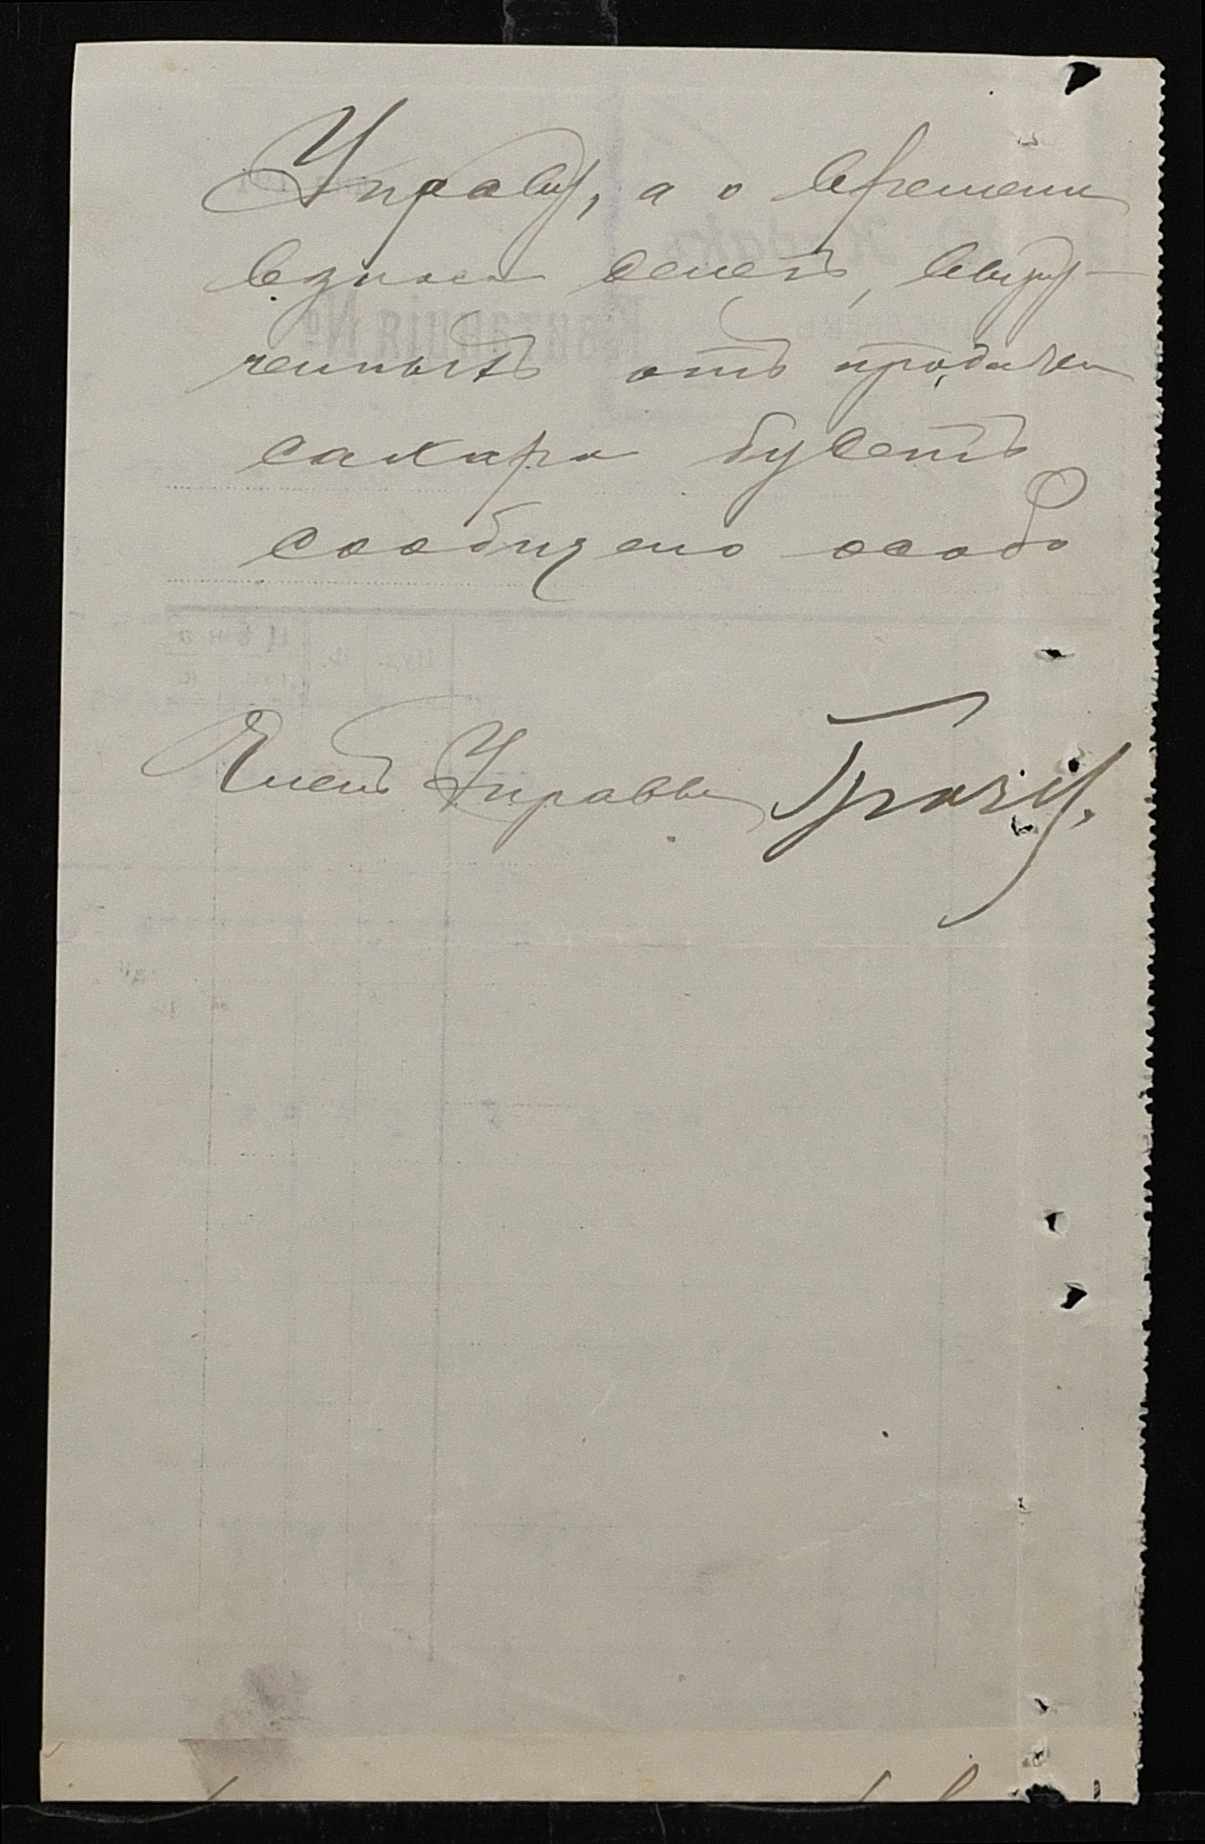 Управу, а о времени
взноса денегъ, выру-
ченныхъ отъ продажи
сахара будетъ
сообщено особо
Членъ Управы